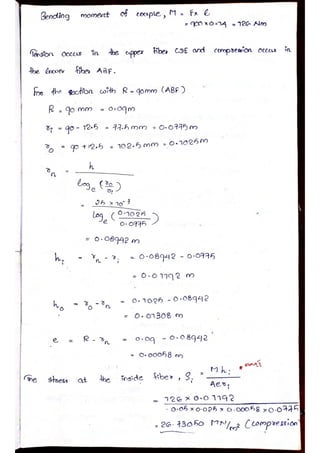 Bending moment of couple, M = F x l
= 900 x 0.14 = 126 Nm
Tension occur in the upper fiber CDE and compression occur in
the lower fiber ABF.
For the section with R = 90mm (ABF)
R = 90 mm = 0.09m
r₁ = 90 - 12.5 = 77.5 mm = 0.0775m
r₀ = 90 + 12.5 = 102.5 mm = 0.1025m
rₙ = h
logₑ (r₀/r₁)
= 25 x 10⁻³
logₑ (0.1025/0.0775)
= 0.08942 m
h₁ = rₙ - r₁ = 0.08942 - 0.0775
= 0.01192 m
h₀ = r₀ - rₙ = 0.1025 - 0.08942
= 0.01308 m
e = R - rₙ = 0.09 - 0.08942
= 0.00058 m
The stress at the inside fiber, Sᵢ = M hᵢ
Aerᵢ
= 126 x 0.01192
0.05 x 0.025 x 0.00058 x 0.0775
= 26.73050 MN/m² (compression)